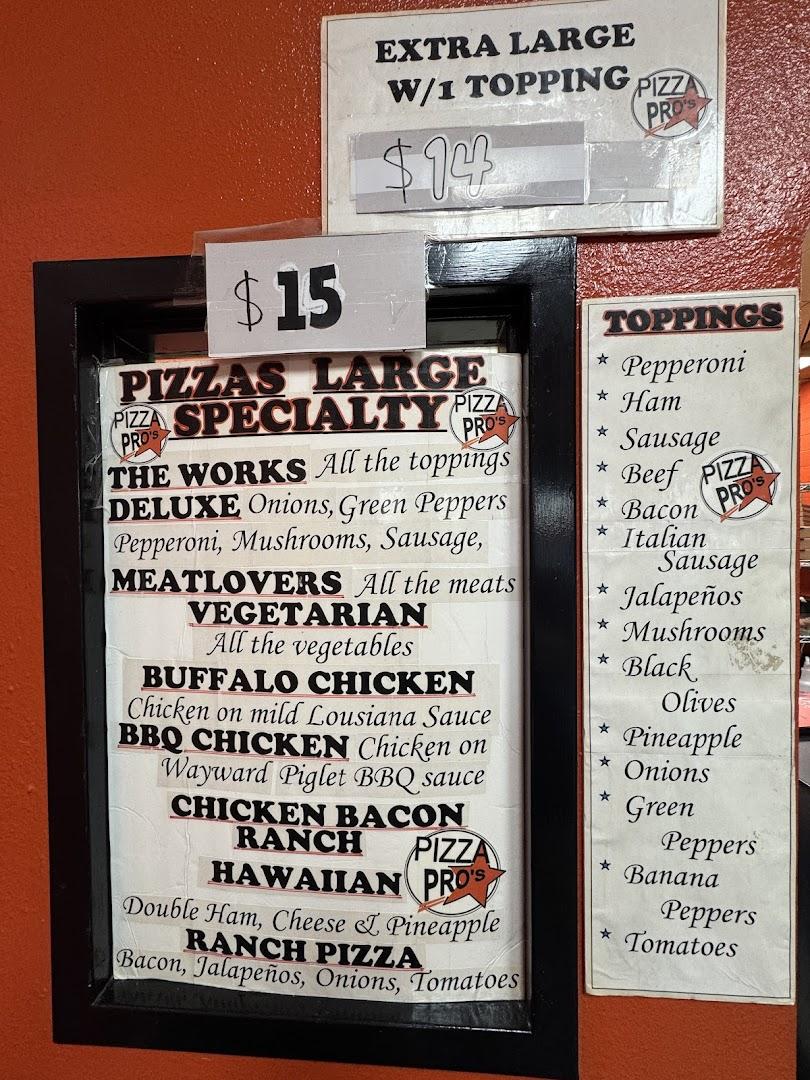 EXTRA LARGE
W/1 TOPPING
PIZZA
PRO'S
$14
$15
PIZZAS LARGE
SPECIALTY
PIZZA
PRO'S
PIZZA
PRO'S
THE WORKS All the toppings
DELUXE Onions, Green Peppers
Pepperoni, Mushrooms, Sausage,
MEATLOVERS All the meats
VEGETARIAN
All the vegetables
BUFFALO CHICKEN
Chicken on mild Lousiana Sauce
BBQ CHICKEN Chicken on
Wayward Piglet BBQ sauce
CHICKEN BACON
RANCH
HAWAIIAN
PIZZA
PRO'S
Double Ham, Cheese & Pineapple
RANCH PIZZA
Bacon, Jalapeños, Onions, Tomatoes
TOPPINGS
Pepperoni
Ham
Sausage
Beef
Bacon
PIZZA
PRO'S
Italian
Sausage
Jalapeños
Mushrooms
Black
Olives
Pineapple
Onions
Green
Peppers
Banana
Peppers
Tomatoes